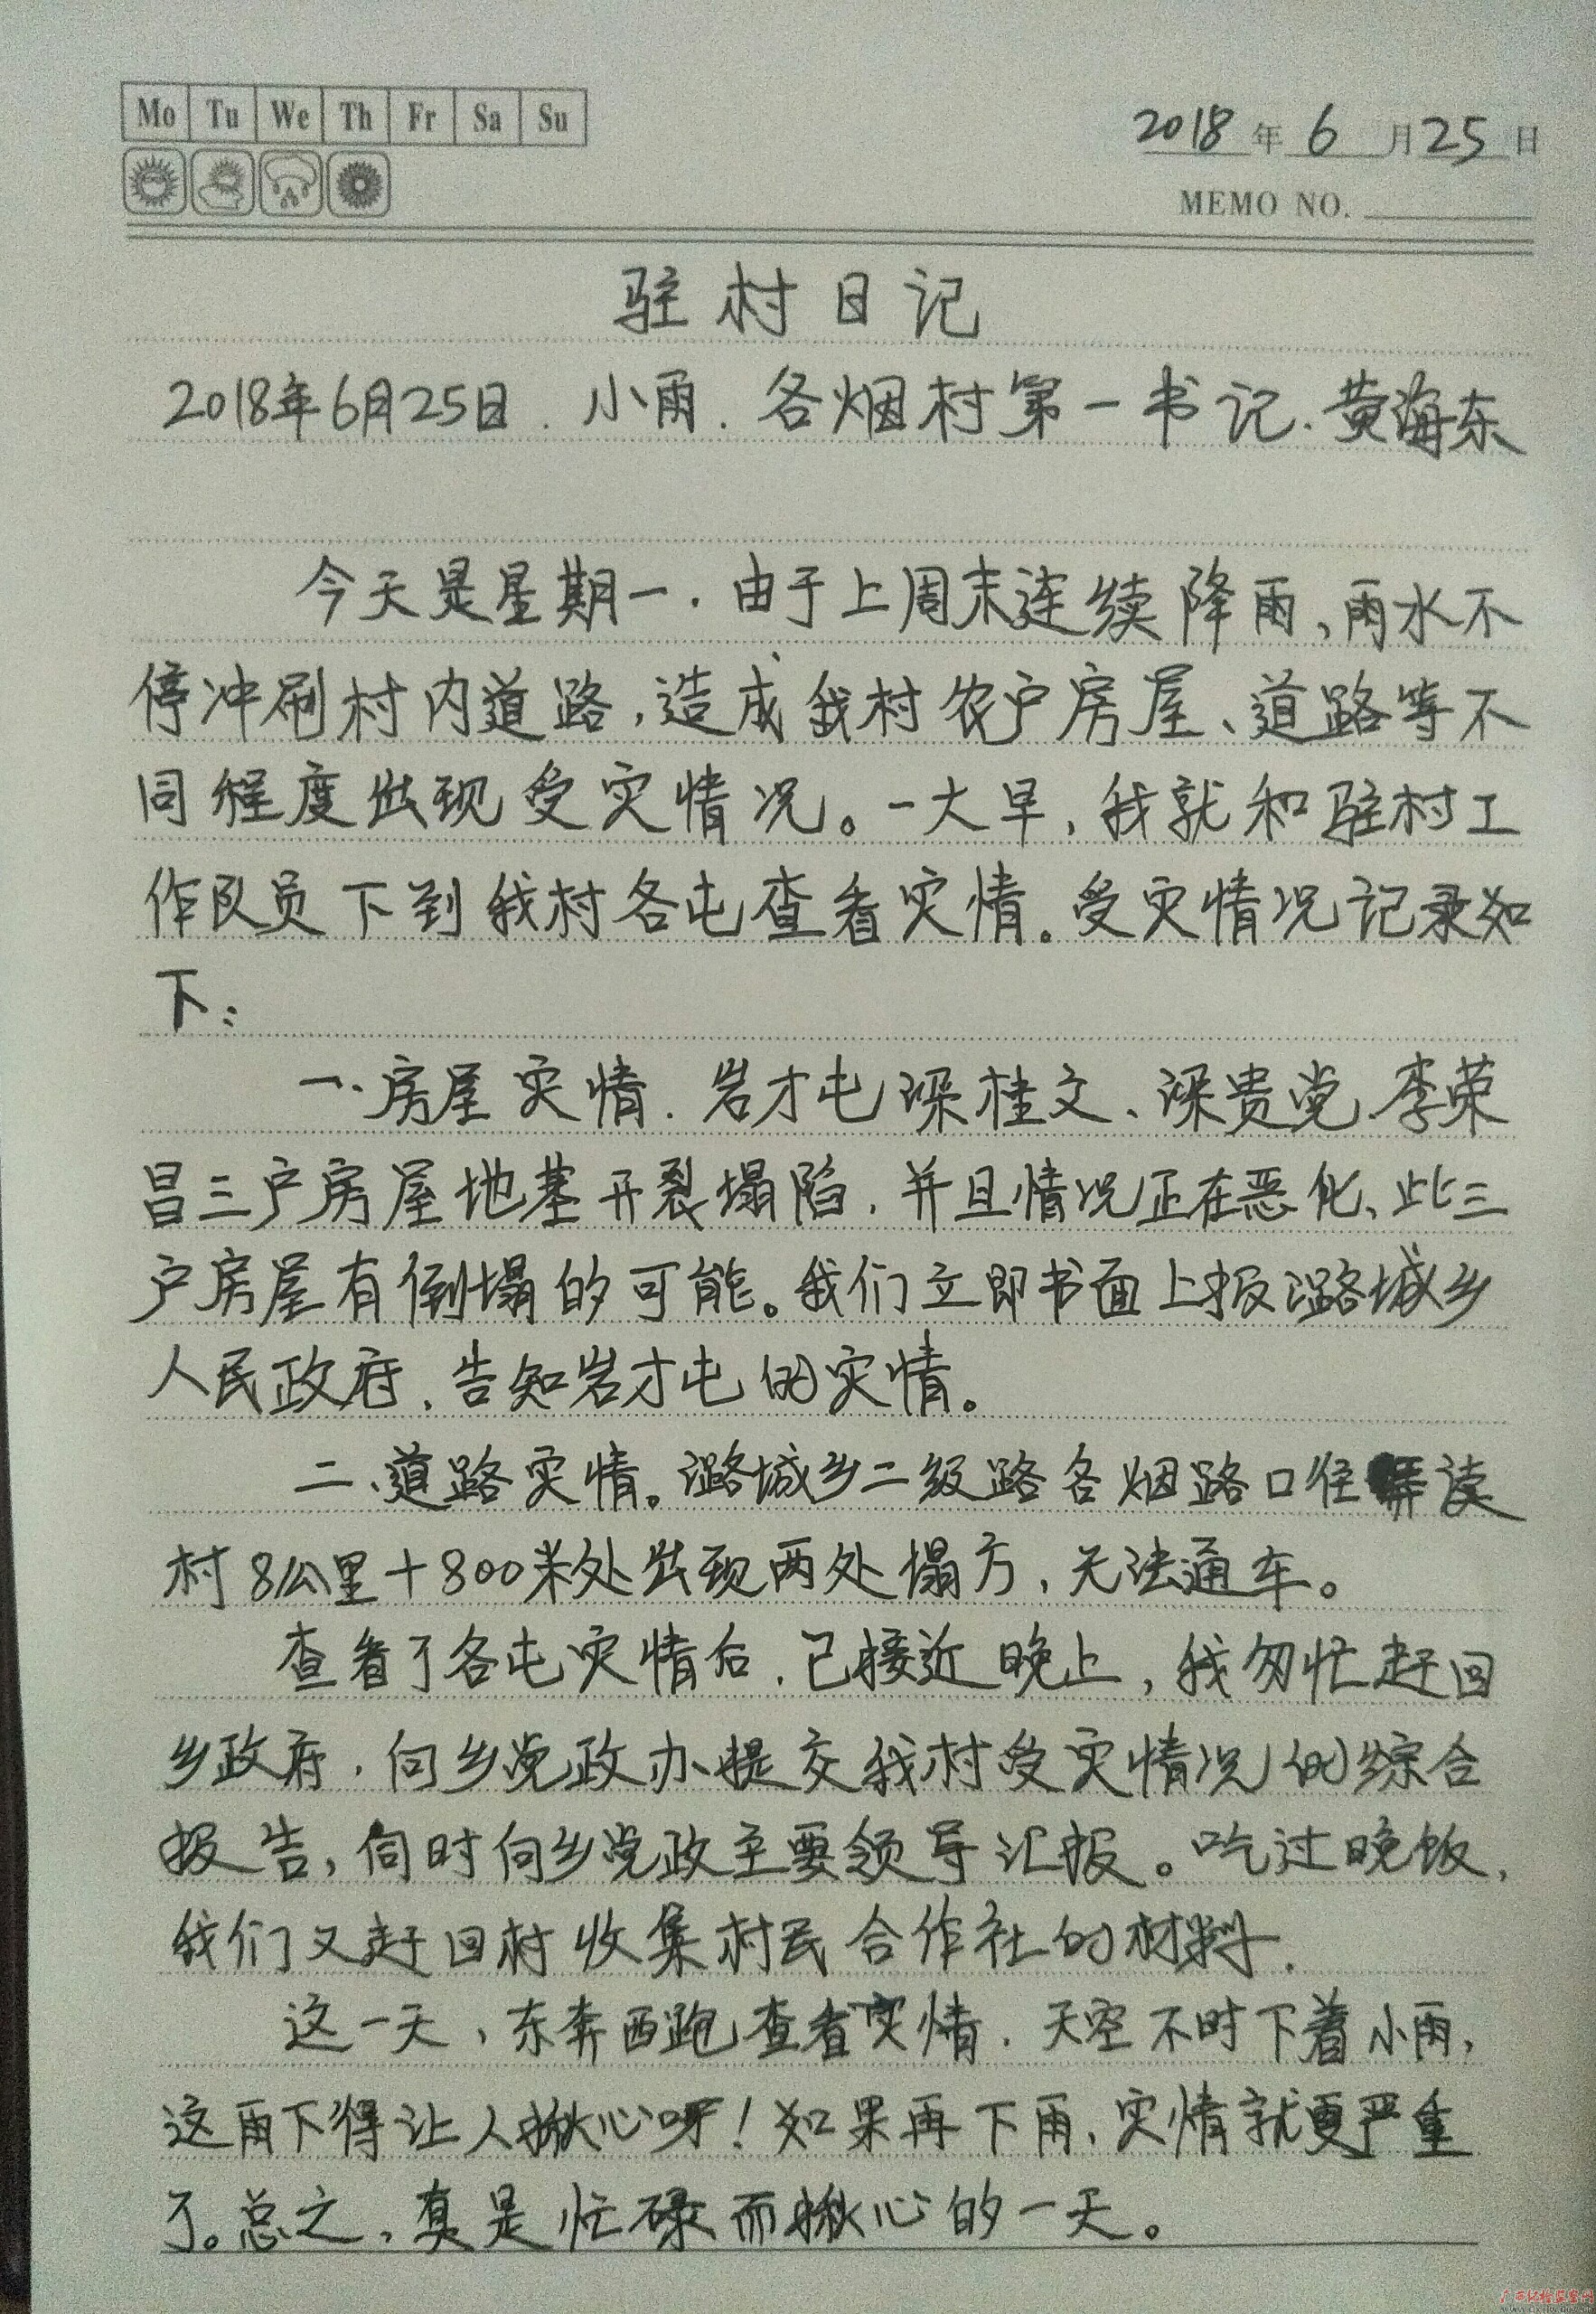 Mo Tu We Th Fr Sa Su
2018年6月25日
MEMO NO.
驻村日记
2018年6月25日.小雨.各烟村第一书记.黄海东
今天是星期一.由于上周末连续降雨,雨水不
停冲刷村内道路,造成我村农户房屋、道路等不
同程度出现受灾情况。一大早,我就和驻村工
作队员下到我村各屯查看灾情。受灾情况记录如
下:
一.房屋灾情.岩才屯梁桂文、梁贵党、李荣
昌三户房屋地基开裂塌陷,并且情况正在恶化、此三
户房屋有倒塌的可能。我们立即书面上报潞城乡
人民政府,告知岩才屯的灾情。
二、道路灾情。潞城乡二级路各烟路口往弄读
村8公里+800米处出现两处塌方,无法通车。
查看了各屯灾情后,已接近晚上,我匆忙赶回
乡政府,向乡党政办提交我村受灾情况的综合
报告,同时向乡党政主要领导汇报。吃过晚饭,
我们又赶回村收集村民合作社的材料.
这一天,东奔西跑查看灾情.天空不时下着小雨,
这雨下得让人揪心呀!如果再下雨,灾情就更严重
了。总之,真是忙碌而揪心的一天。